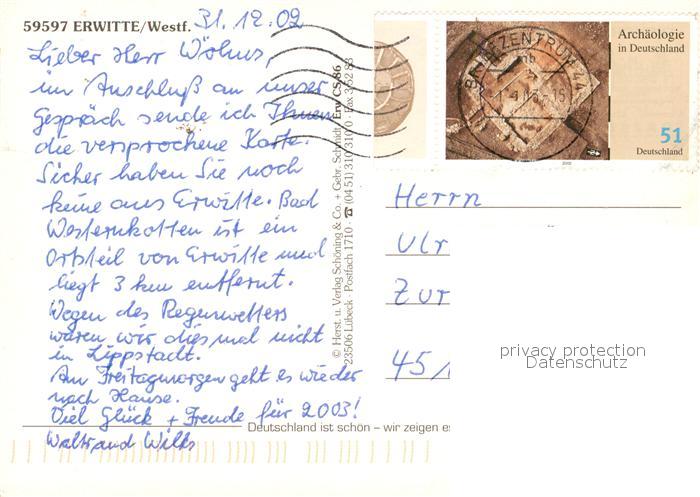 59597 ERWITTE/Westf. 31.12.02
Lieber Herr Wöhns,
im Anschluß an unser
Gespräch sende ich Ihnen
die versprochene Karte.
Sicher haben Sie noch
keine aus Erwitte. Bad
Westernkotten ist ein
Ortsteil von Erwitte und
liegt 3 km entfernt.
Wegen des Regenwetters
waren wir diesmal nicht
in Lippstadt.
Am Freitagmorgen geht es wieder
nach Hause.
Viel Glück + Freude für 2003!
Waltraud Wilks
© Herst. u. Verlag Schöning & Co. + Gebr. Schmidt, Erw CS 86
23506 Lübeck · Postfach 1710 · ☎ (04 51) 310 310 · Fax
Deutschland ist schön – wir zeigen es
BRIEFZENTRUM 44
Archäologie
in Deutschland
51
Deutschland
2002
Herrn
Ulr
Zur
45
privacy protection
Datenschutz